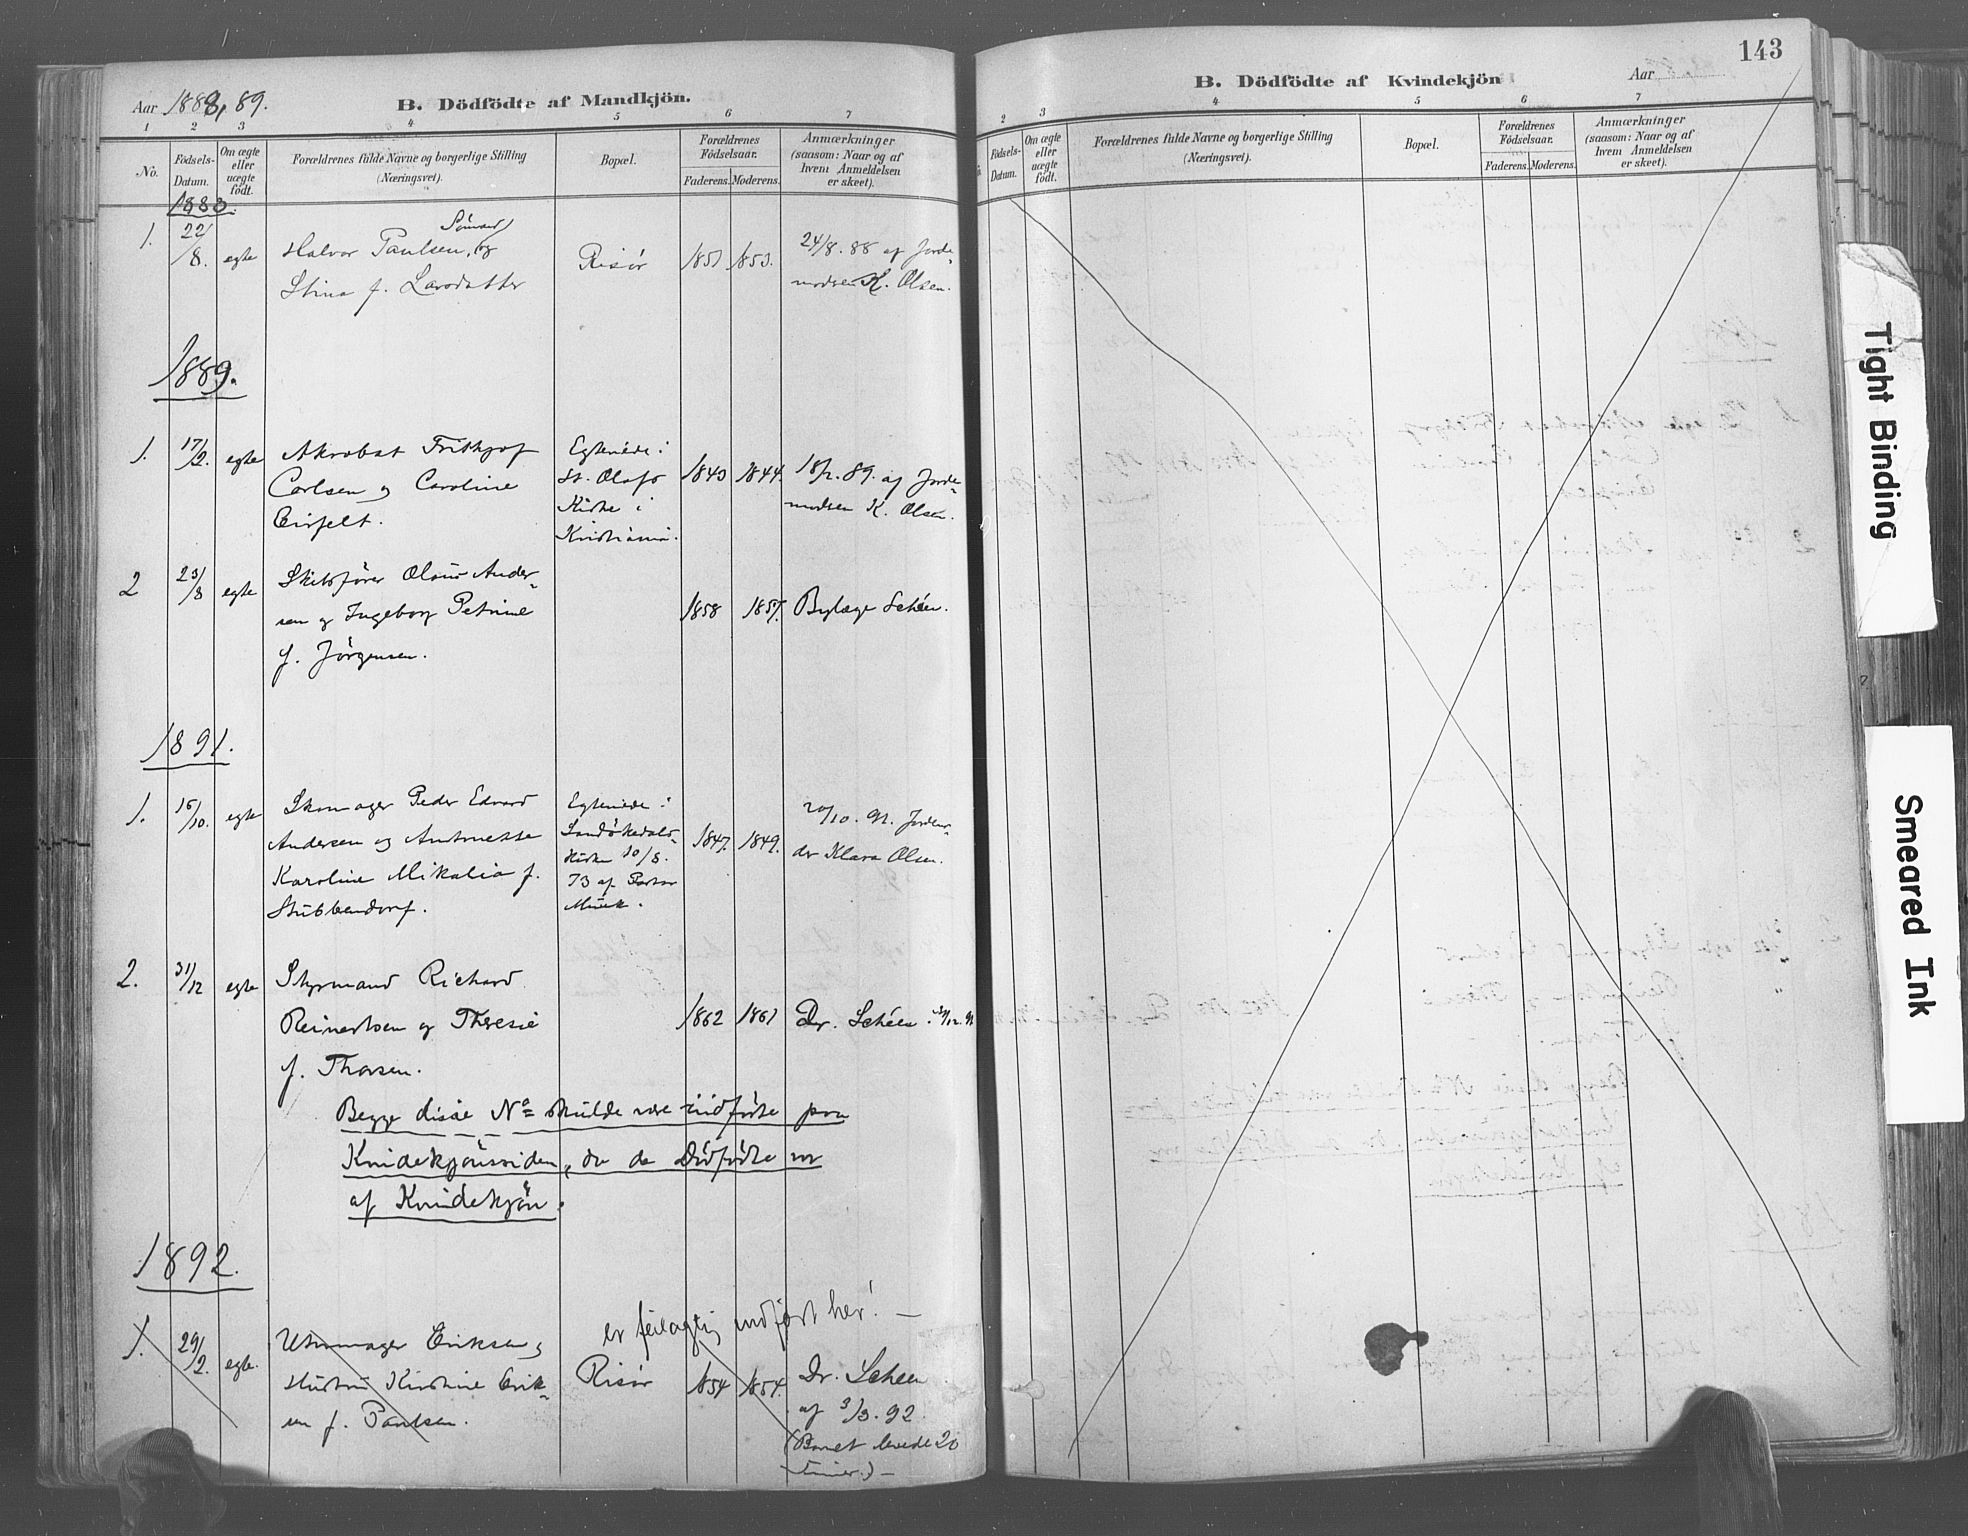 Aar 1888, 89.
B. Dödfödte af Mandkjön.
1 2 3 4 5 6 7
No.
Födsels-
Datum.
Om ægte
eller
uægte
födt.
Forældrenes fulde Navne og borgerlige Stilling
(Næringsvei).
Bopæl.
Forældrenes
Födselsaar.
Faderens. Moderens.
Anmærkninger
(saasom: Naar og af
hvem Anmeldelsen
er skeet).
1888.
1. 22/8. egte
Halvor Paulsen, Sömand, og
Stina f. Larsdatter
Risör
1851 1853.
24/8. 88 af Jorde-
modsen K. Olsen.
1889.
1. 17/2. egte
Akrobat Frithjof
Carlsen og Caroline
Eirfelt.
Egteviede i
St. Olafs
Kirke i
Kristiania.
1843 1844.
18/2. 89. af Jorde-
modsen K. Olsen.
2 23/8 egte
Skibsfører Olaus Ander-
sen og Ingeborg Petrine
f. Jörgensen.
1858 1857.
Bylæge Schéen.
1891.
1. 15/10. egte
Skomager Peder Edvard
Andersen og Antonette
Karoline Mikalia f.
Stubbendorf.
Egteviede i
Sandökedals
Kirke 10/5.
73 af Pastor
Munk.
1847. 1849.
20/10. 91. Jordmo-
der Klara Olsen.
2. 31/12 egte
Styrmand Richard
Reinertsen og Theresie
f. Thorsen.
1862 1861
Dr. Schéen 31/12. 91
Begge disse No skulde være indførte paa
Kvindekjönssiden, da de Dödfödte var
af Kvindekjön.
1892.
er feilagtig indført her! —
1. 29/2. egte.
Uhrmager Eriksen og
Hustru Kirstine Erik-
sen f. Paulsen.
Risör
1854 1854.
Dr. Schéen
af 3/3. 92.
(Barnet levede 20
timer.) —
143
B. Dödfödte af Kvindekjön
Aar
2 3 4 5 6 7
Födsels-
Datum.
Om ægte
eller
uægte
födt.
Forældrenes fulde Navne og borgerlige Stilling
(Næringsvei).
Bopæl.
Forældrenes
Födselsaar.
Faderens. Moderens.
Anmærkninger
(saasom: Naar og af
hvem Anmeldelsen
er skeet).
Tight Binding
Smeared Ink